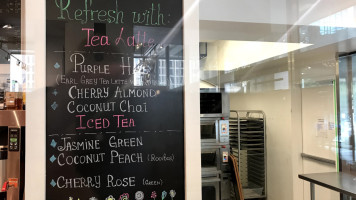 Refresh with:
Tea Latte
Purple
(Earl Grey Tea Latte
Cherry Almond
Coconut Chai
Iced Tea
Jasmine Green
Coconut Peach (Rooibos)
Cherry Rose (Green)